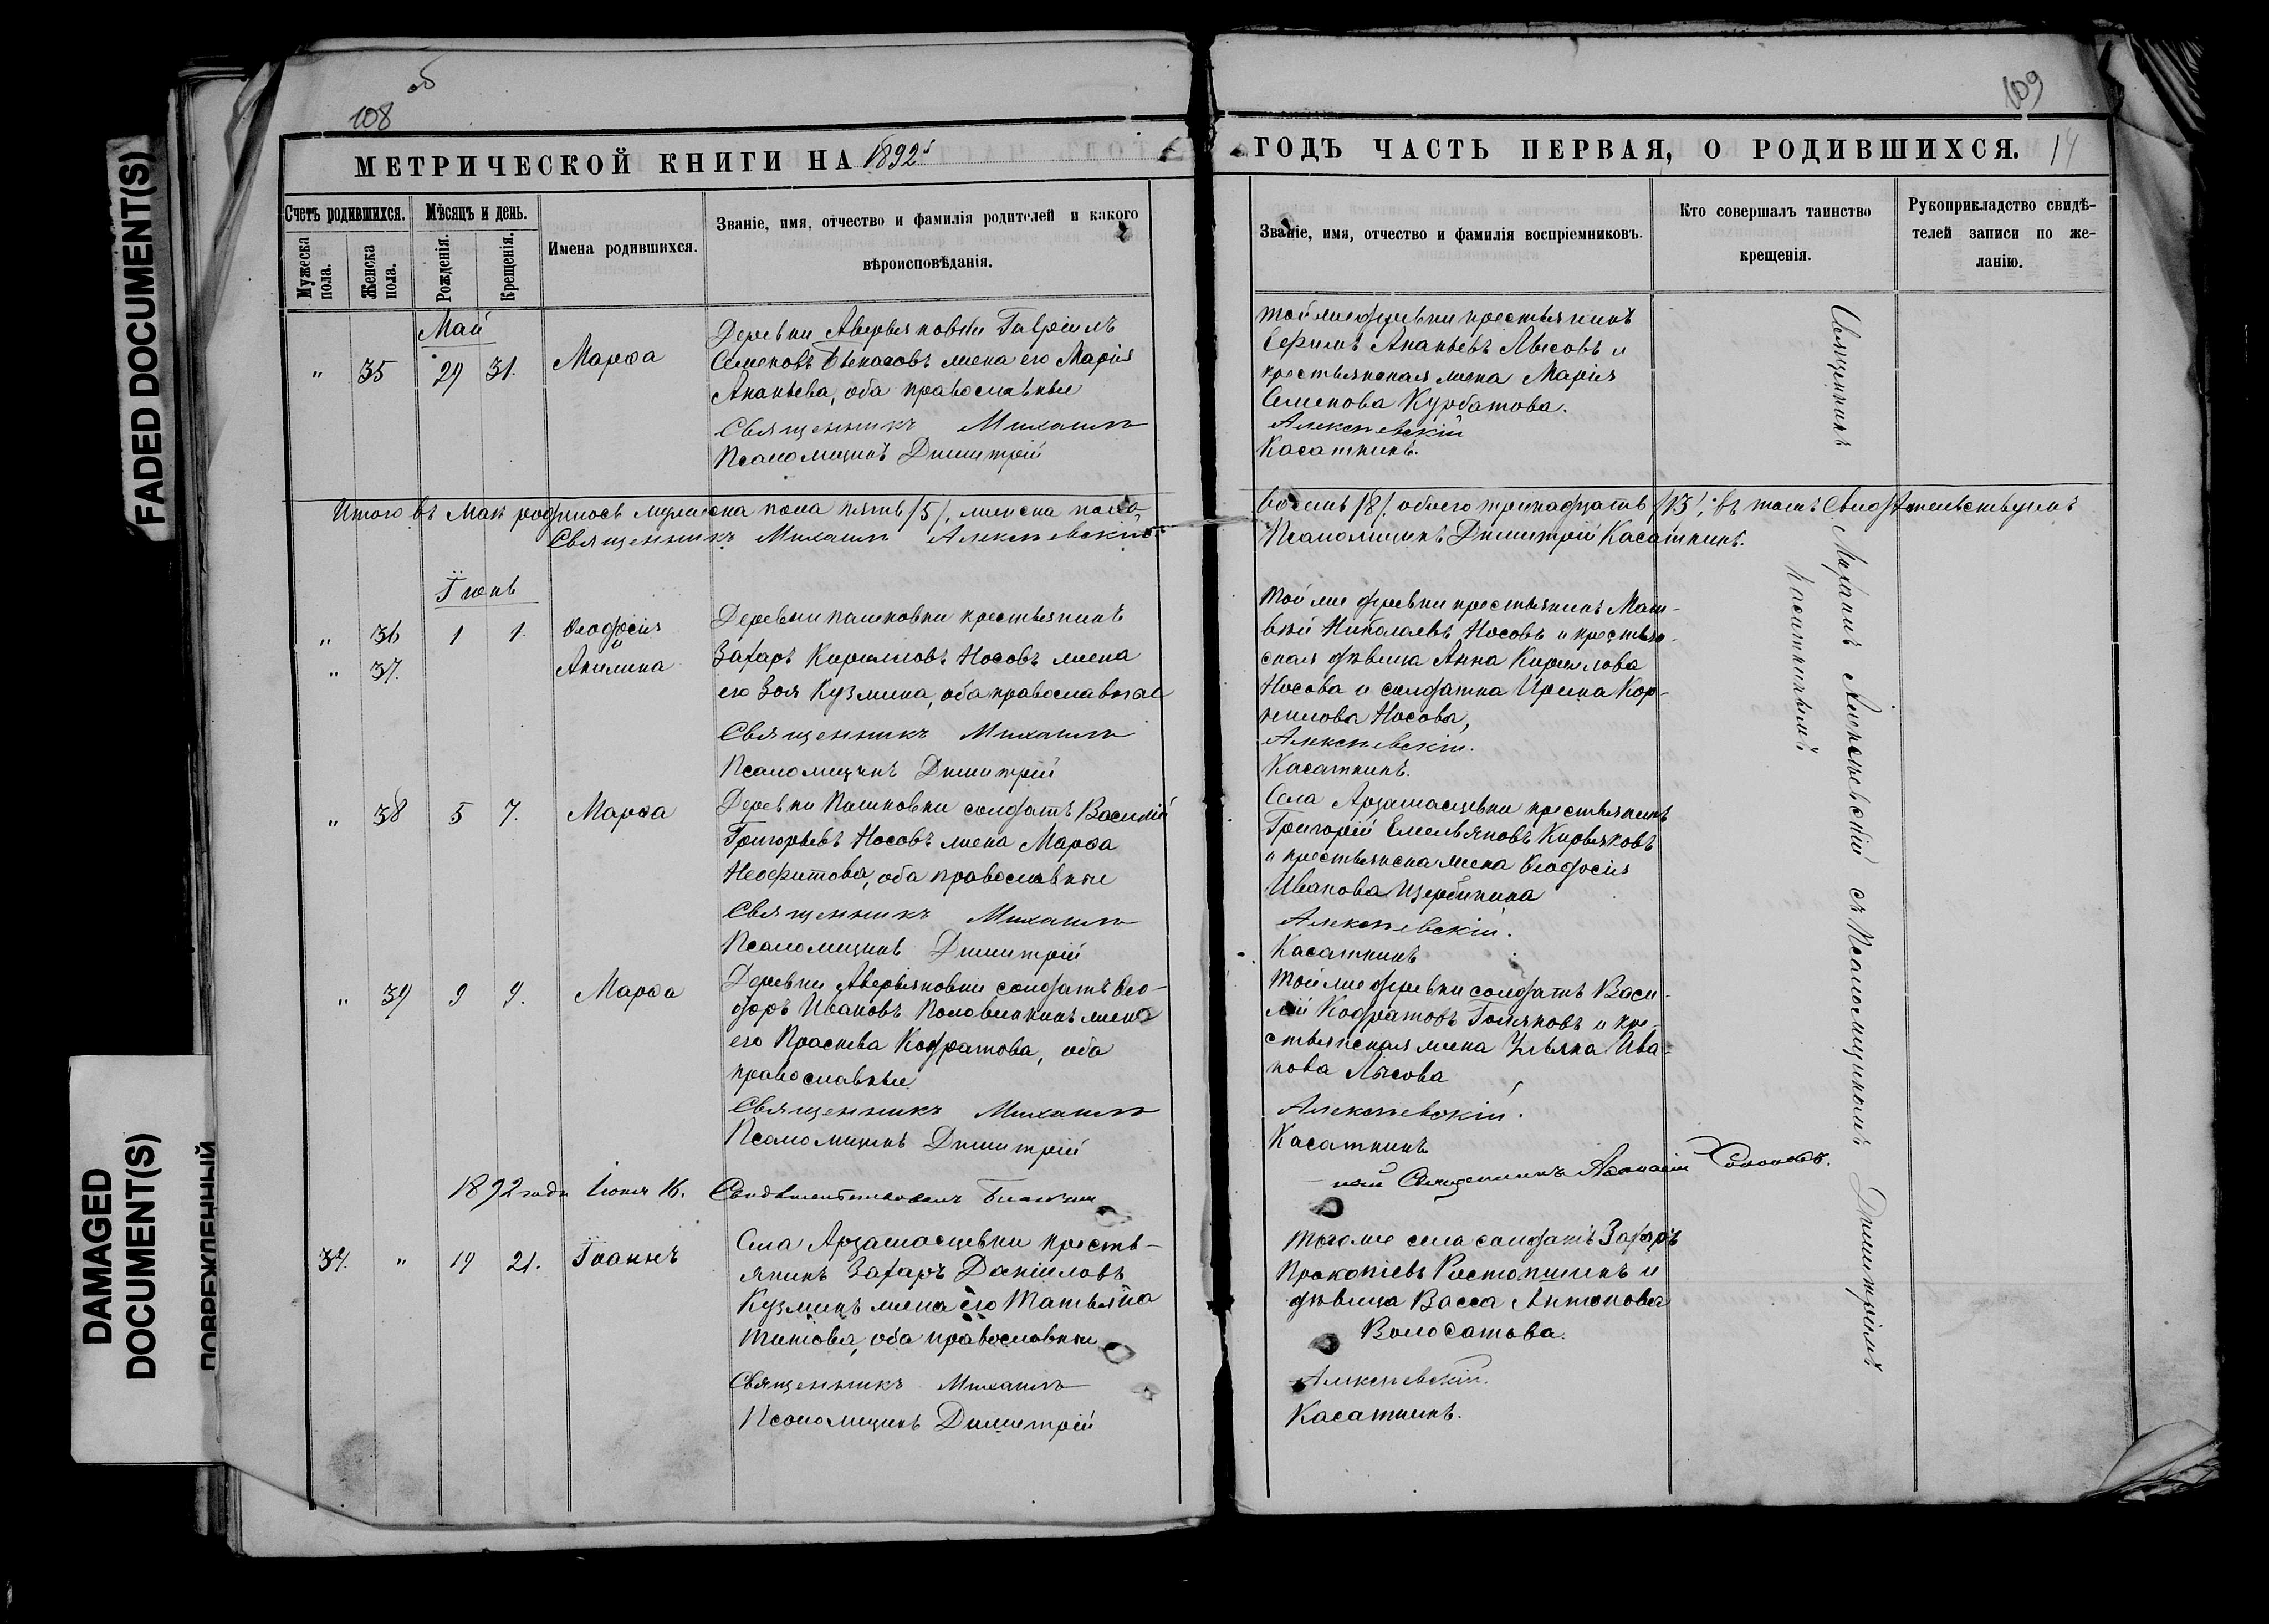 108 об
109
МЕТРИЧЕСКОЙ КНИГИ НА 1892й
ГОДЪ ЧАСТЬ ПЕРВАЯ, О РОДИВШИХСЯ. 14
Счетъ родившихся.
Мужеска пола.
Женска пола.
Мѣсяцъ и день.
Рожденія.
Крещенія.
Имена родившихся.
Званіе, имя, отчество и фамилія родителей и какого
вѣроисповѣданія.
Званіе, имя, отчество и фамилія воспріемниковъ.
Кто совершалъ таинство
крещенія.
Рукоприкладство свидѣ-
телей записи по же-
ланію.
Май
" 35 29 31. Марѳа
Деревни Аверьяновки Гавріилъ
Семеновъ жена его Марія
Ананьева, оба православные
Священникъ Михаилъ
Псаломщикъ Димитрій
той же деревни крестьянинъ
Ананьевъ Лысовъ и
крестьянская жена Марія
Семенова Курбатова.
Алексѣевскій
Касаткинъ.
Итого въ Маѣ родилось мужеска пола пять /5/, женска пола
восемь /8/ обоего тринадцать /13/, въ томъ Свидѣтельствуемъ
Священникъ Михаилъ Алексѣевскій.
Псаломщикъ Димитрій Касаткинъ.
Іюнь
" 36 1 1. Ѳеодосія
и
" 37. Акилина
Деревни Пашковки крестьянинъ
Захаръ Кириловъ Носовъ жена
его Зоя Кузмина, оба православные
Священникъ Михаилъ
Псаломщикъ Димитрій
Той же деревни крестьянинъ Мат-
вѣй Николаевъ Носовъ и крестьян-
ская дѣвица Анна Кирилова
Носова и солдатка Ирина Кор-
нилова Носова,
Алексѣевскій.
Касаткинъ.
" 38 5 7. Марѳа
Деревни Пашковки солдатъ Василій
Григорьевъ Носовъ жена Марѳа
Неофитова, оба православные
Священникъ Михаилъ
Псаломщикъ Димитрій
Села Арзамасцевки крестьянинъ
Григорій Емельяновъ Кирьяковъ
и крестьянска жена Ѳеодосія
Иванова Щербинина
Алексѣевскій.
Касаткинъ
" 39 9 9. Марѳа
Деревни Аверьяновки солдатъ Ѳео-
доръ Ивановъ Половинкинъ жена
его Праскева Кодратова, оба
православные
Священникъ Михаилъ
Псаломщикъ Димитрій
Той же деревни солдатъ Васи-
лій Кодратовъ и кре-
стьянская жена Ульяна Ива-
нова Лысова
Алексѣевскій.
Касаткинъ
1892 года Іюня 16. Свидѣтельствовалъ
Священникъ Аѳанасій
32. " 19 21. Іоаннъ
Села Арзамасцевки кресть-
янинъ Захаръ Даніиловъ
Кузминъ жена его Татьяна
Титова, оба православные
Священникъ Михаилъ
Псаломщикъ Димитрій
Того же села солдатъ Захаръ
Прокопіевъ Ростопшинъ и
дѣвица Васса Антонова
Волосатова.
Алексѣевскій.
Касаткинъ.
Священникъ Михаилъ Алексѣевскій съ Псаломщикомъ Димитріемъ
Касаткинымъ
FADED DOCUMENT(S)
DAMAGED
DOCUMENT(S)
ПОВРЕЖДЕННЫЙ